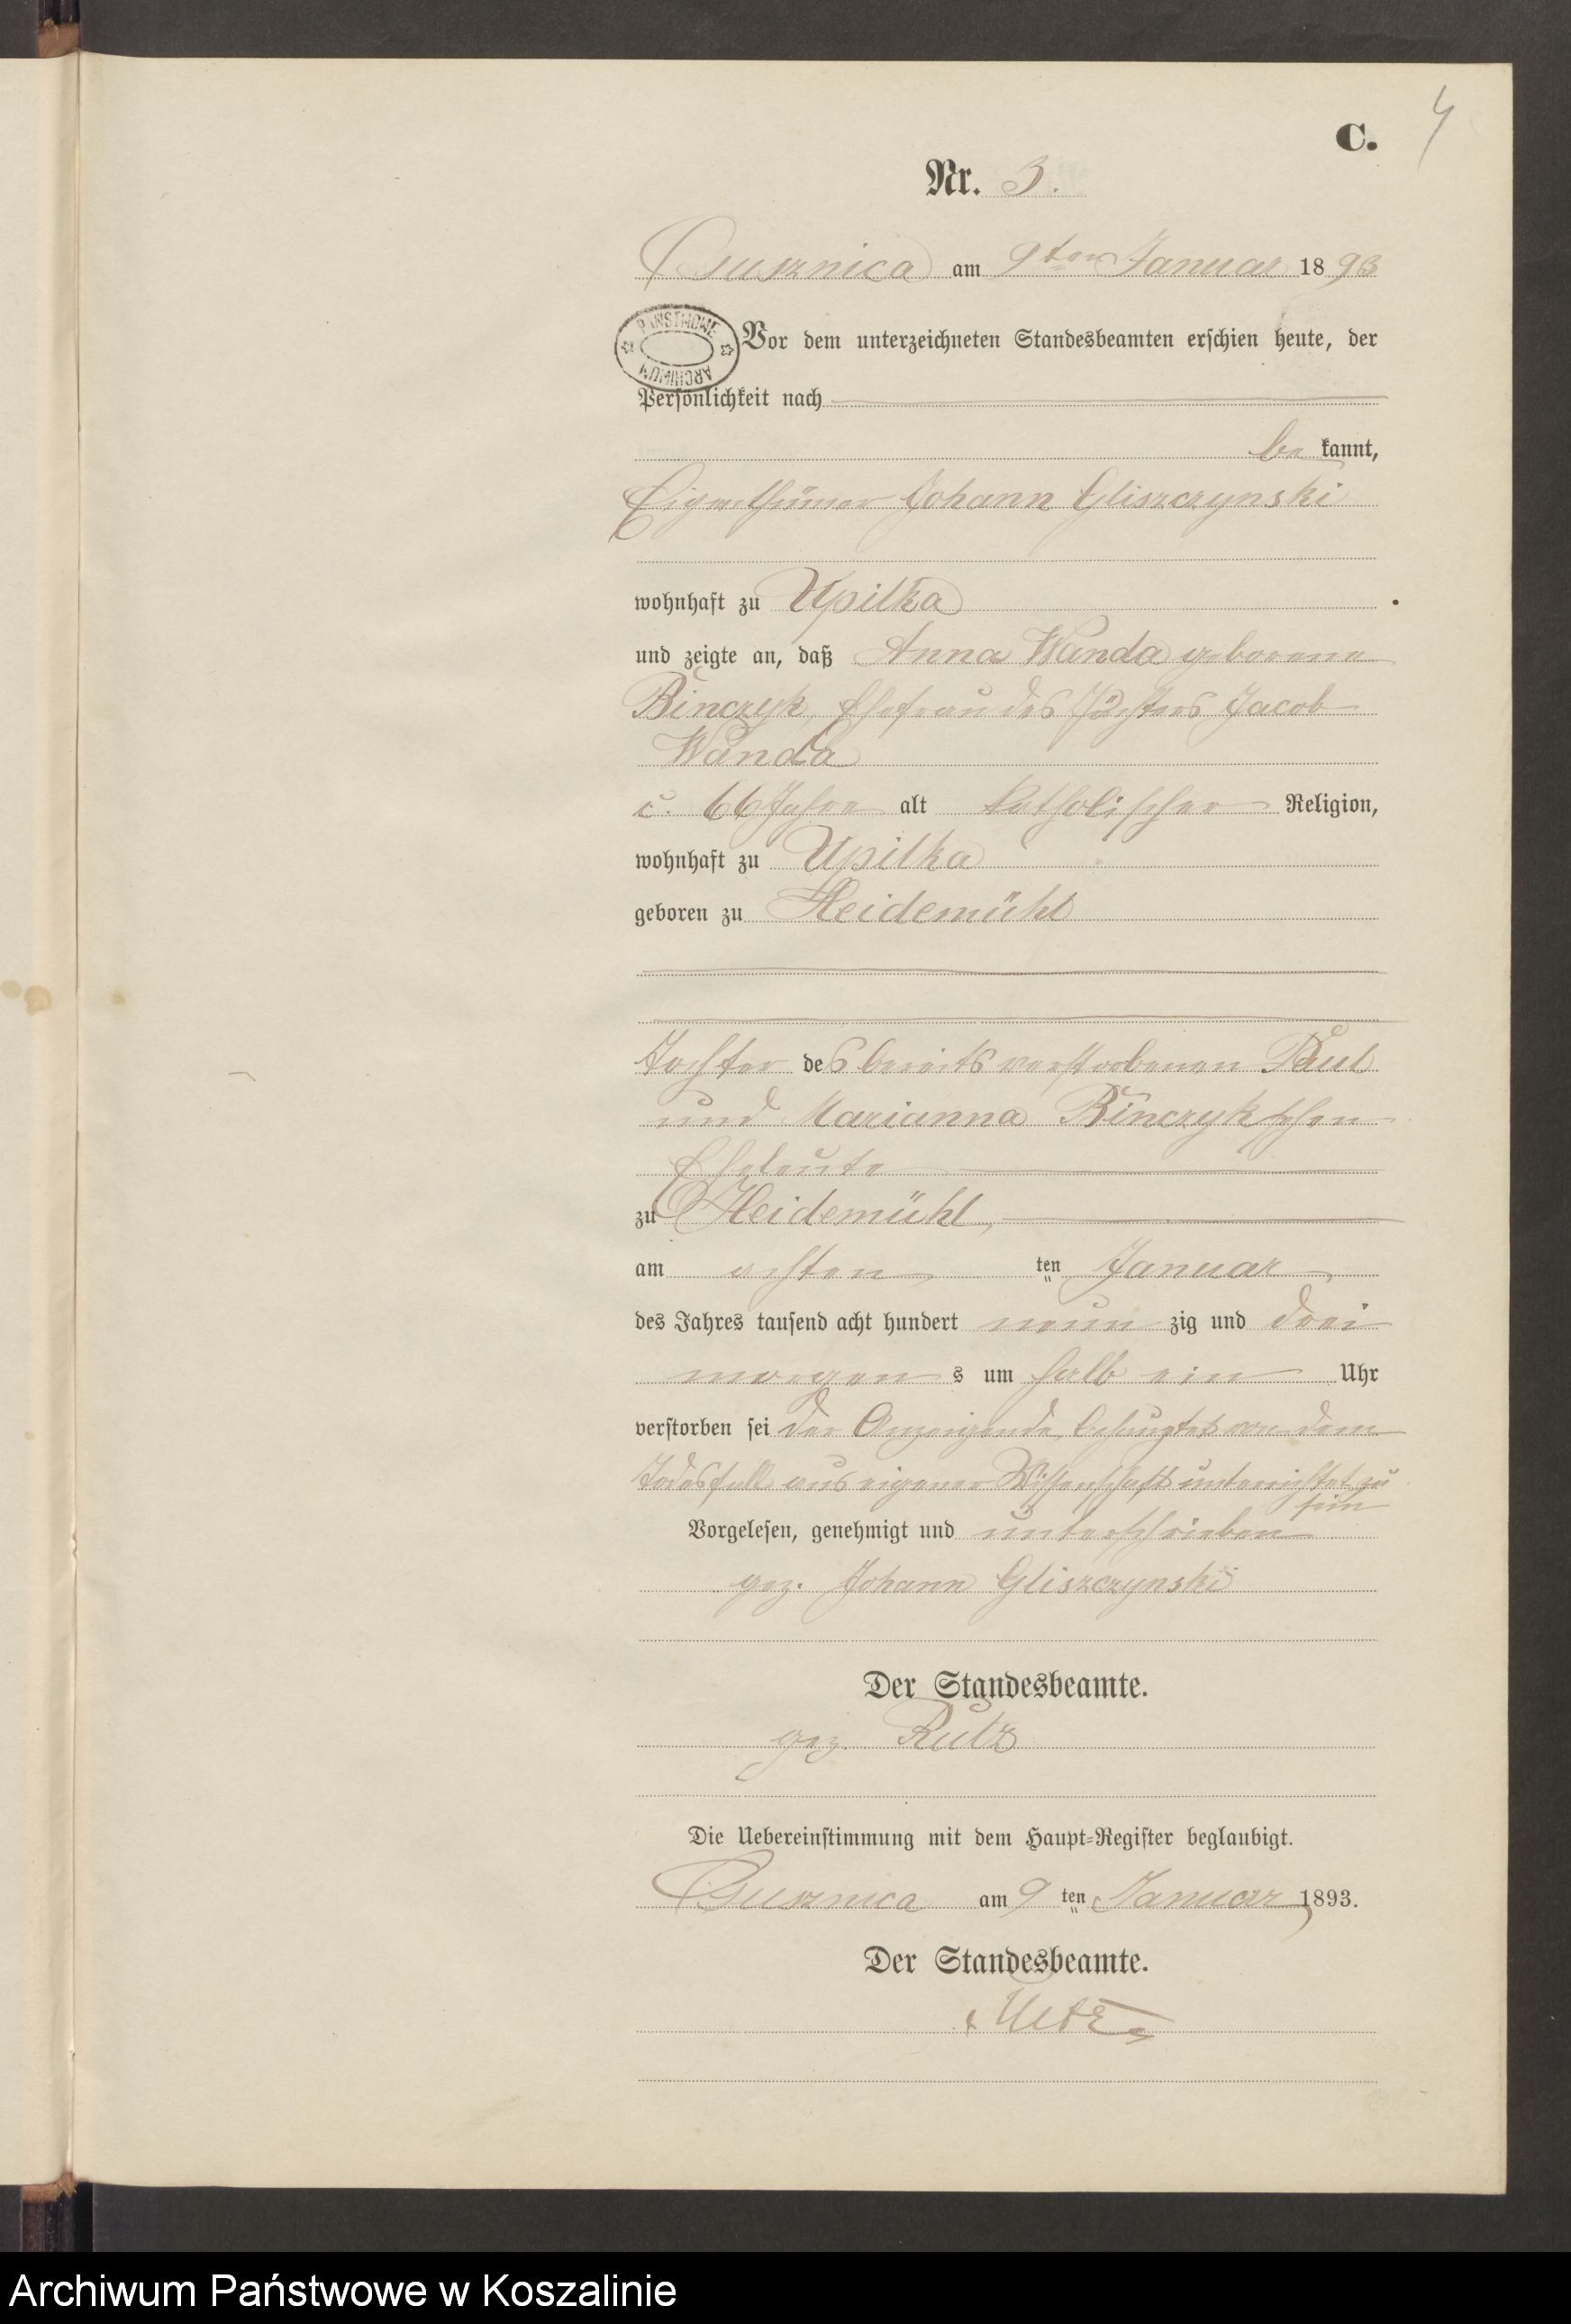 4
C.
Nr. 3.
Gusznica am 9ten Januar 1893
PAŃSTWOWE
ARCHIWUM
Vor dem unterzeichneten Standesbeamten erschien heute, der
Persönlichkeit nach
be kannt,
Eigenthümer Johann Gliszczynski
wohnhaft zu Upilka
und zeigte an, daß Anna Wanda geborene
Binczyk, Ehefrau des Jacob
Wanda
c. 66 Jahre alt katholischer Religion,
wohnhaft zu Upilka
geboren zu Heidemühl
Tochter des bereits verstorbenen Paul
und Marianna Binczykschen
Eheleute
zu Heidemühl,
am achten ten Januar
des Jahres tausend acht hundert neun zig und drei
morgen s um halb ein Uhr
verstorben sei der Anzeigende behauptet von dem
Todesfall aus eigener Wissenschaft unterrichtet zu
sein
Vorgelesen, genehmigt und unterschrieben
gez. Johann Gliszczynski
Der Standesbeamte.
gez. Rutz
Die Uebereinstimmung mit dem Haupt-Register beglaubigt.
Gusznica am 9 ten Januar 1893.
Der Standesbeamte.
Rutz
Archiwum Państwowe w Koszalinie